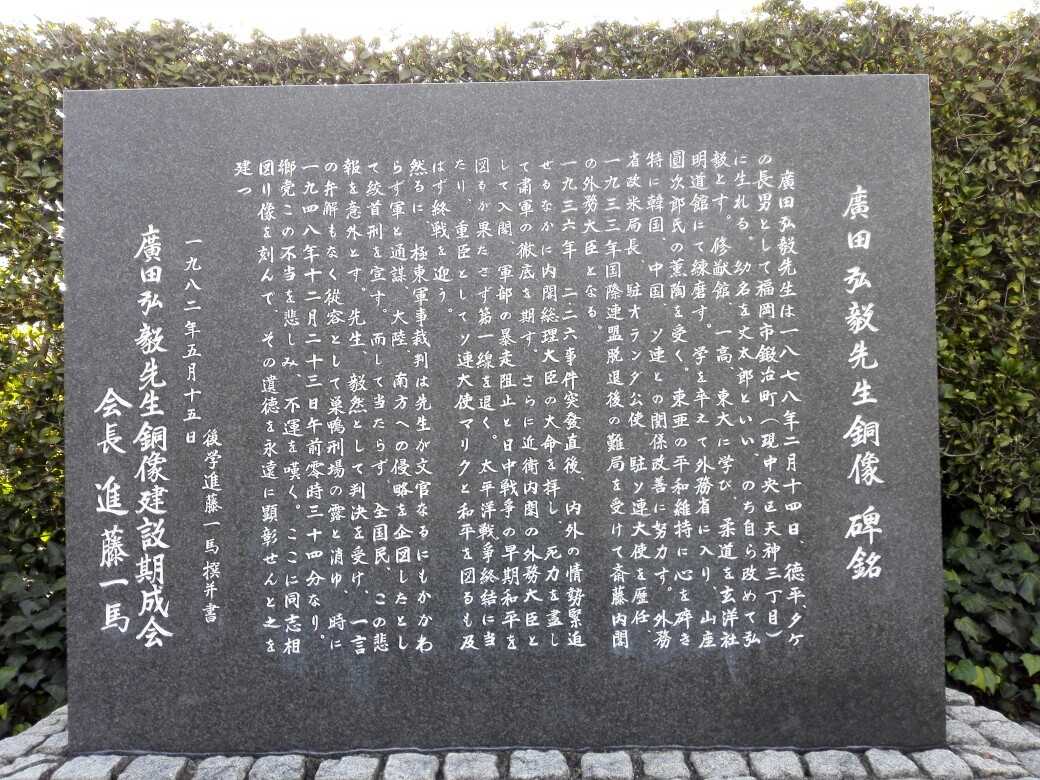 廣田弘毅先生銅像 碑銘
廣田弘毅先生は一八七八年二月十四日、徳平、タケ
の長男として福岡市鍛冶町(現中央区天神三丁目)
に生れる。幼名を丈太郎といい、のち自ら改めて弘
毅とす。修猷館、一高、東大に学び、柔道を玄洋社
明道館にて練磨す。学を卒えて外務省に入り、山座
圓次郎氏の薫陶を受く。東亜の平和維持に心を砕き
特に韓国、中国、ソ連との関係改善に努力す。外務
省政米局長、駐オランダ公使、駐ソ連大使を歴任、
一九三三年国際連盟脱退後の難局を受けて斎藤内閣
の外務大臣となる。
一九三六年 二二六事件突発直後、内外の情勢緊迫
せるなかに内閣総理大臣の大命を拝し、死力を盡し
て粛軍の徹底を期す。さらに近衛内閣の外務大臣と
して入閣、軍部の暴走阻止と日中戦争の早期和平を
図るが果たさず第一線を退く。太平洋戦争終結に当
たり、重臣としてソ連大使マリクと和平を図るも及
ばず終戦を迎う。
然るに、極東軍事裁判は先生が文官なるにもかかわ
らず軍と通謀、大陸、南方への侵略を企図したとし
て絞首刑を宣す。而して当たらず、全国民、この悲
報を意外とす。先生、毅然として判決を受け、一言
の弁解もなく従容として巣鴨刑場の露と消ゆ、時に
一九四八年十二月二十三日午前零時三十四分なり。
郷党この不当を悲しみ、不運を嘆く。ここに同志相
図り像を刻んで、その遺徳を永遠に顕彰せんと之を
建つ
一九八二年五月十五日
後学進藤一馬撰并書
廣田弘毅先生銅像建設期成会
会長 進藤一馬